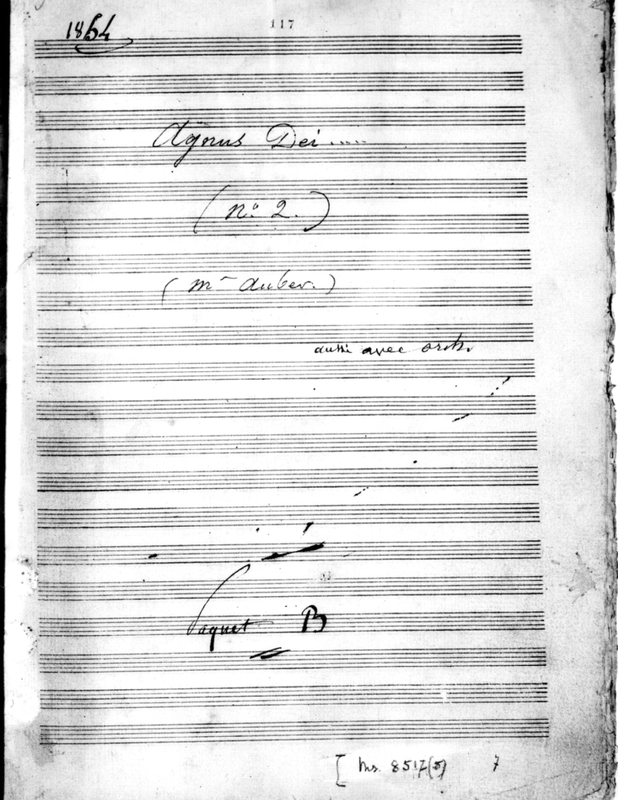 1864
117
Agnus Dei....
(nº 2.)
(mr Auber.)
aussi avec orch.
Paquet B
[ Ms. 8517(5) 7